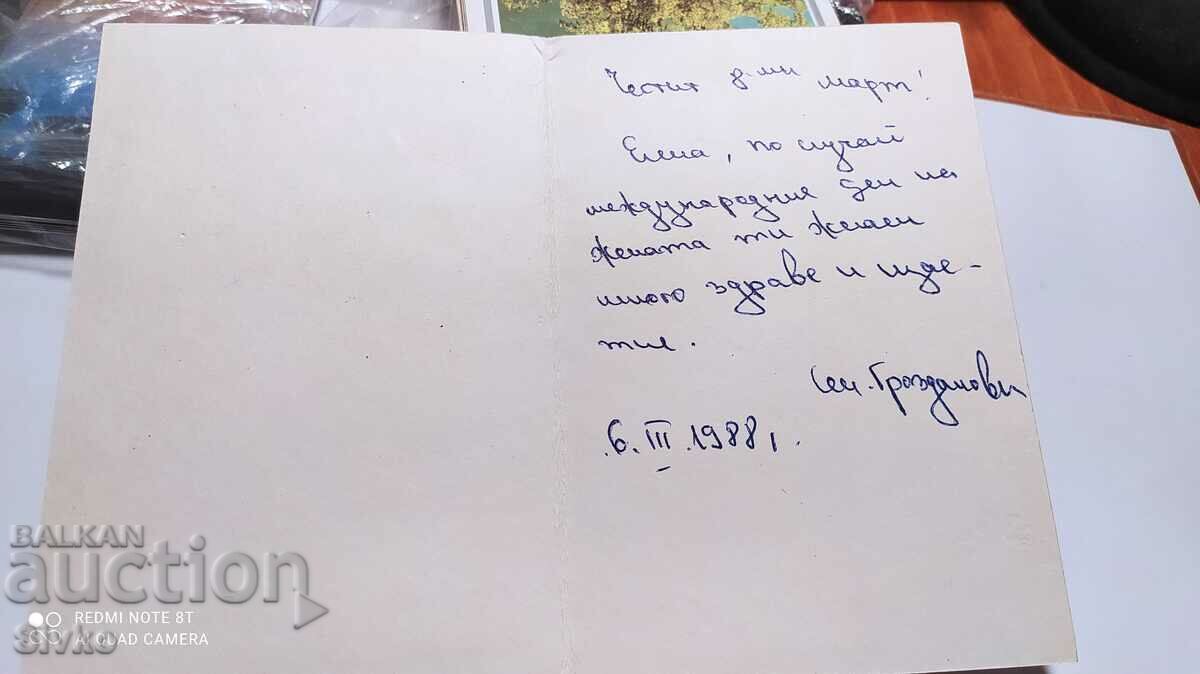 Честит 8-ми март!
Елена, по случай
международния ден на
жената ти желаем
много здраве и щас-
тие.
Сем. Грозданови
6. III. 1988 г.
BALKAN
auction
REDMI NOTE 8T
AI QUAD CAMERA
Sivko